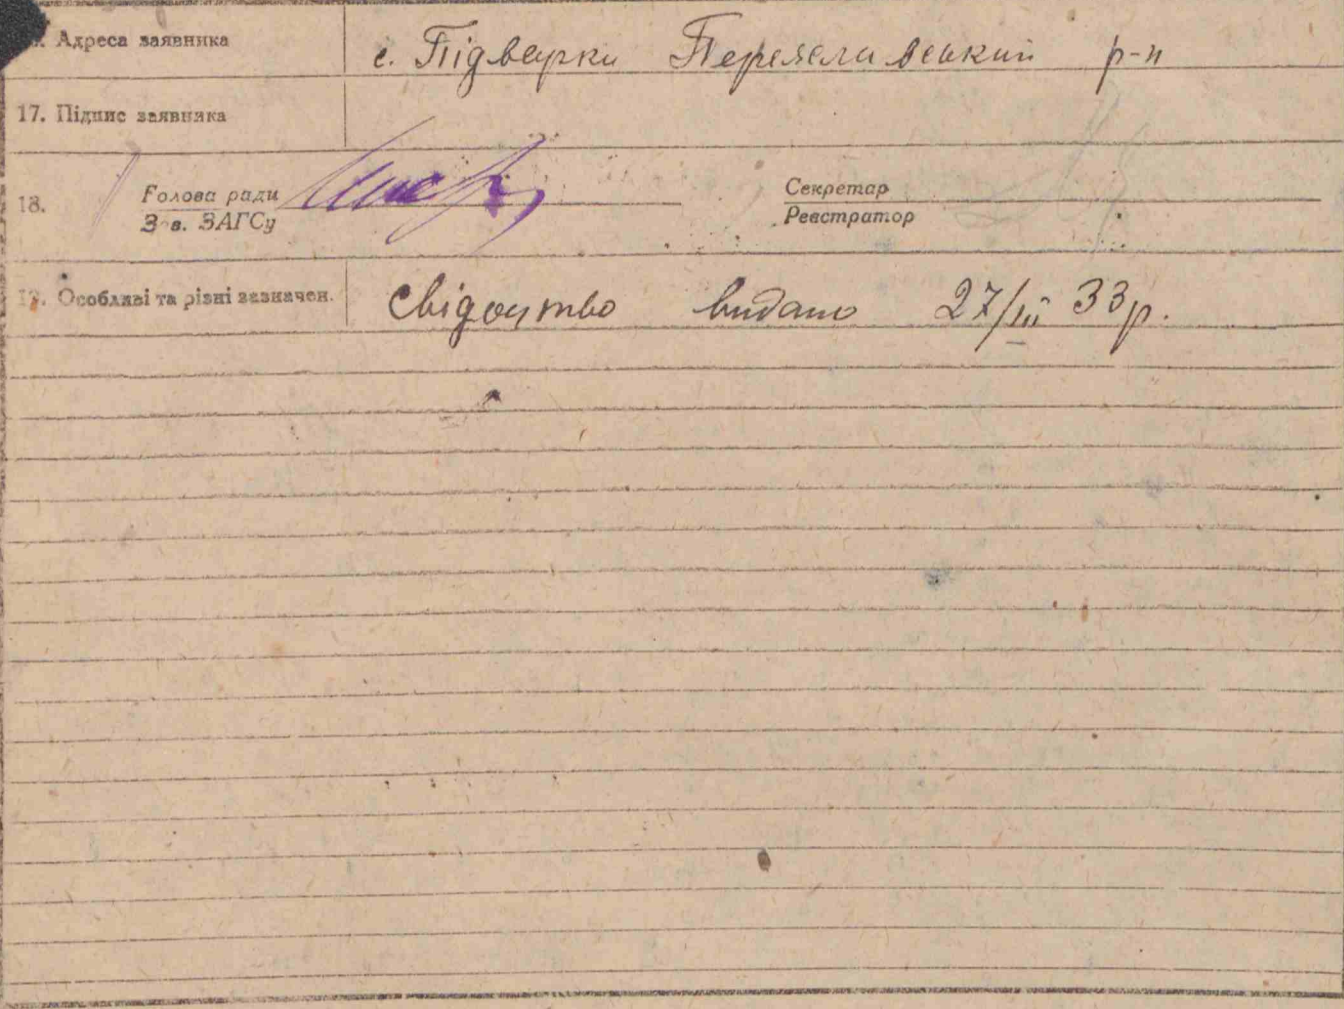 Адреса заявника с. Підварки Переяславський р-н
17. Підпис заявника
18. Голова ради Секретар
Зав. ЗАГСу Реєстратор
19. Особливі та різні зазначен. Свідоцтво видано 27/III 33р.